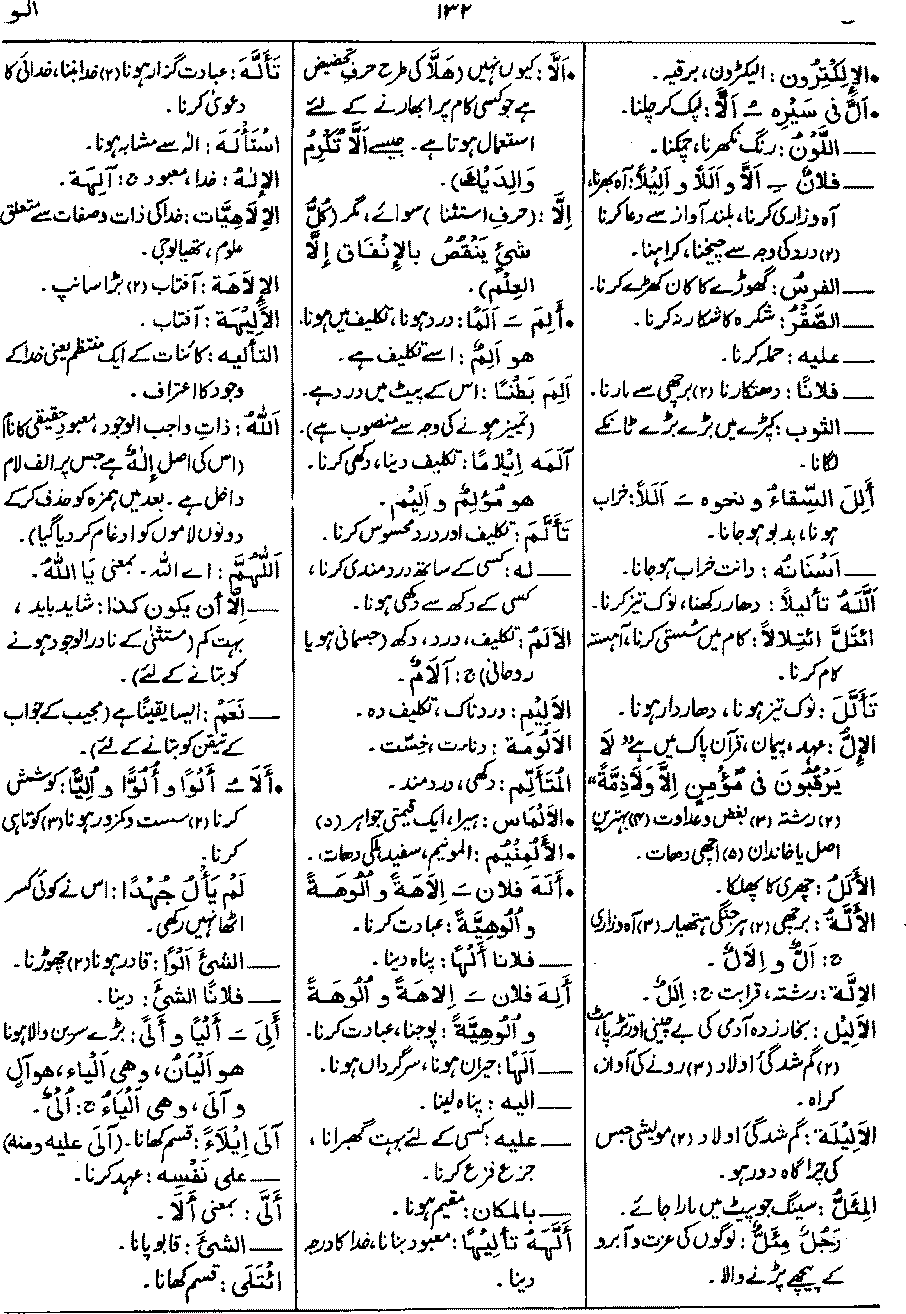 الو
۱۳۲
•الإلكترون: الیکٹرون، برقیہ۔
•أَلَّ فی سَیْرِهِ ـُ أَلًّا: لپک کر چلنا۔
— اللَّوْنُ: رنگ نکھرنا، چمکنا۔
— فلانٌ ـِ أَلًّا و أَلَلًا و أَلِیْلًا: آہ بھرنا،
آہ و زاری کرنا، بلند آواز سے دعا کرنا
(۲) درد کی وجہ سے چیخنا، کراہنا۔
— الفرسُ: گھوڑے کا کان کھڑے کرنا۔
— الصَّقْرُ: شکرہ کا شکار نہ کرنا۔
— علیه: حملہ کرنا۔
— فلانًا: دھتکارنا (۲) برچھی سے مارنا۔
— الثوبَ: کپڑے میں بڑے بڑے ٹانکے
لگانا۔
أَلِلَ السِّقاءُ و نحوه ـَ أَلَلًا: خراب
ہونا، بدبو ہو جانا۔
— أَسْنَانُه: دانت خراب ہو جانا۔
أَلَّلَهُ تألیلًا: دھار رکھنا، نوک تیز کرنا۔
ائْتَلَّ ائْتِلَالًا: کام میں سُستی کرنا، آہستہ
کام کرنا۔
تَأَلَّلَ: نوک تیز ہونا، دھار دار ہونا۔
الإِلُّ: عہد، پیمان، قرآن پاک میں ہے "لَا
یَرْقُبُونَ فی مُؤْمِنٍ إِلًّا وَلَا ذِمَّةً"
(۲) رشتہ (۳) بغض و عداوت (۴) بہترین
اصل یا خاندان (۵) اچھی دھات۔
الأَلَلُ: چھری کا پھلکا۔
الأَلَّةُ: برچھی (۲) ہر جنگی ہتھیار (۳) آہ و زاری
ج: أَلٌّ و إِلَالٌ۔
الإِلَّة: رشتہ، قرابت ج: إِلَلٌ۔
الأَلِیْل: بخار زدہ آدمی کی بے چینی اور تڑپاہٹ
(۲) گم شدگیٔ اولاد (۳) رونے کی آواز،
کراہ۔
الأَلِیْلَة: گم شدگیٔ اولاد (۲) مویشی جس
کی چراگاہ دور ہو۔
المِئَلُّ: سینگ جو پیٹ میں مارا جائے۔
رَجُلٌ مِئَلٌّ: لوگوں کی عزت و آبرو
کے پیچھے پڑنے والا۔
•أَلَّا: کیوں نہیں (هَلَّا کی طرح حرفِ تحضیض
ہے جو کسی کام پر ابھارنے کے لئے
استعمال ہوتا ہے۔ جیسے أَلَّا تُکْرِمُ
وَالِدَیْكَ)۔
إِلَّا: (حرفِ استثنا) سوائے، مگر (کُلُّ
شئٍ یَنْقُصُ بالإِنْفَاق إِلَّا
العِلْمُ)۔
•أَلِمَ ـَ أَلَمًا: درد ہونا، تکلیف میں ہونا۔
هو أَلِمٌ: اسے تکلیف ہے۔
أَلِمَ بَطْنًا: اس کے پیٹ میں درد ہے۔
(تمیز ہونے کی وجہ سے منصوب ہے)۔
آلَمَه إِیْلَامًا: تکلیف دینا، دکھی کرنا۔
هو مُؤْلِمٌ و أَلِیْم۔
تَأَلَّمَ: تکلیف اور درد محسوس کرنا۔
— له: کسی کے ساتھ درد مندی کرنا،
کسی کے دکھ سے دکھی ہونا۔
الأَلَمُ: تکلیف، درد، دکھ (جسمانی ہو یا
روحانی) ج: آلَامٌ۔
الأَلِیْم: دردناک، تکلیف دہ۔
الأَلُومَة: دنارت، خِسّت۔
المُتَأَلِّم: دکھی، درد مند۔
•الأَلْمَاس: ہیرا، ایک قیمتی جواہر (د)
•الأَلُمِنْیُم: المونیم، سفید ہلکی دھات۔
•أَلَهَ فلان ـَ إِلَاهَةً و أُلُوهَةً
و أُلُوهِیَّةً: عبادت کرنا۔
— فلانا أَلْهًا: پناہ دینا۔
أَلِهَ فلان ـَ إِلَاهَةً و أُلُوهَةً
و أُلُوهِیَّةً: پوجنا، عبادت کرنا۔
— أَلَهًا: حیران ہونا، سرگرداں ہونا۔
— الیه: پناہ لینا۔
— علیه: کسی کے لئے بہت گھبرانا،
جزع فزع کرنا۔
— بالمکان: مقیم ہونا۔
أَلَّهَهُ تألیهًا: معبود بنانا، خدا کا درجہ
دینا۔
تَأَلَّهَ: عبادت گزار ہونا (۲) خدا بننا، خدائی کا
دعویٰ کرنا۔
اسْتَأْلَهَ: الٰہ سے مشابہ ہونا۔
الإِلٰهُ: خدا، معبود ج: آلِهَة۔
الإِلَاهِیَّات: خدا کی ذات و صفات سے متعلق
علوم، تھیالوجی۔
الإِلَاهَة: آفتاب (۲) بڑا سانپ۔
الأَلِیْهَة: آفتاب۔
التألیه: کائنات کے ایک منتظم یعنی خدا کے
وجود کا اعتراف۔
اَللّٰهُ: ذاتِ واجب الوجود، معبودِ حقیقی کا نام
(اس کی اصل إِلٰهٌ ہے جس پر الف لام
داخل ہے۔ بعد میں ہمزہ کو حذف کر کے
دونوں لاموں کو ادغام کر دیا گیا)۔
اَللّٰهُمَّ: اے اللہ۔ بمعنی یَا اللّٰهُ۔
— إِلَّا أن یکون کذا: شاید باید،
بہت کم (مستثنیٰ کے نادر الوجود ہونے
کو بتانے کے لئے)۔
— نَعَمْ: ایسا یقینًا ہے (مجیب کے جواب
کے تیقن کو بتانے کے لئے)۔
•أَلَا ـُ أَلْوًا و أُلُوًّا و أُلِیًّا: کوشش
کرنا (۲) سست و کمزور ہونا (۳) کوتاہی
کرنا۔
لَمْ یَأْلُ جُهْدًا: اس نے کوئی کسر
اٹھا نہیں رکھی۔
— الشئَ أَلْوًا: قادر ہونا (۲) چھوڑنا۔
— فلانًا الشئَ: دینا۔
أَلِیَ ـَ أَلْیًا و أَلًی: بڑے سرین والا ہونا
هو أَلْیَانُ، وهی أَلْیَاء، هو آلٍ
و آلَی، وهی أَلْیَاءُ ج: أُلْیٌ۔
آلَی إِیْلَاءً: قسم کھانا۔ (آلَی علیه ومنه)
— علی نَفْسِهِ: عہد کرنا۔
أَلَّی: بمعنی أَلَا۔
— الشئَ: قابو پانا۔
ائْتَلَی: قسم کھانا۔